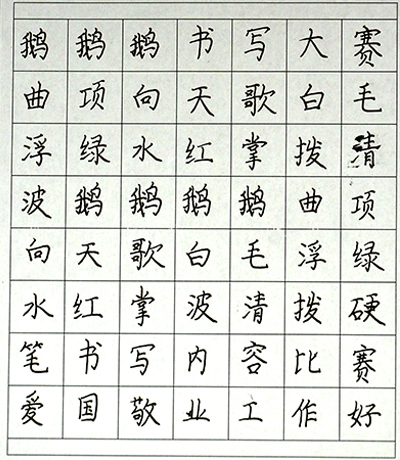 鹅鹅鹅书写大赛
曲项向天歌白毛
浮绿水红掌拨清
波鹅鹅鹅鹅曲项
向天歌白毛浮绿
水红掌波清拨硬
笔书写内容比赛
爱国敬业工作好